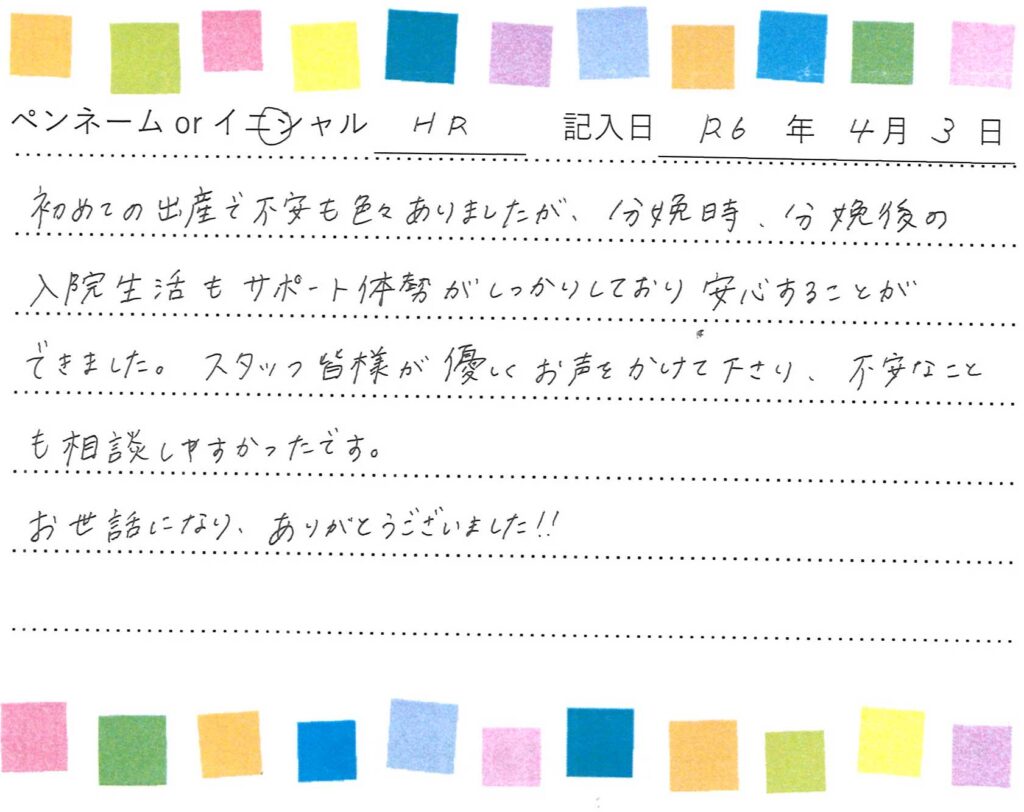 ペンネーム or イニシャル HR 記入日 R6 年 4月 3 日
初めての出産で不安も色々ありましたが、分娩時、分娩後の
入院生活もサポート体勢がしっかりしており安心することが
できました。スタッフ皆様が優しくお声をかけて下さり、不安なこと
も相談しやすかったです。
お世話になり、ありがとうございました!!